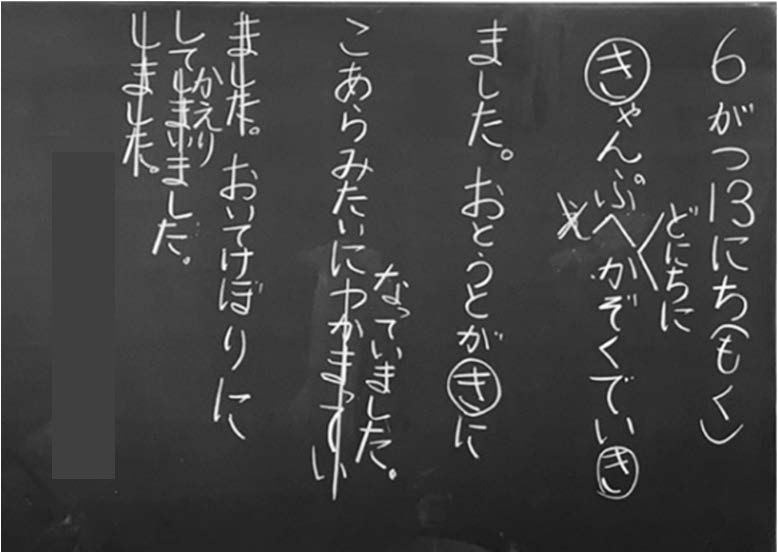 6がつ13にち(もく)
どにちに
きゃんぷへかぞくでいき
の
え
ました。おとうとがきに
なっていました。
こあらみたいにつかまってい
ました。おいてけぼりに
かえり
してしまいました。
しました。